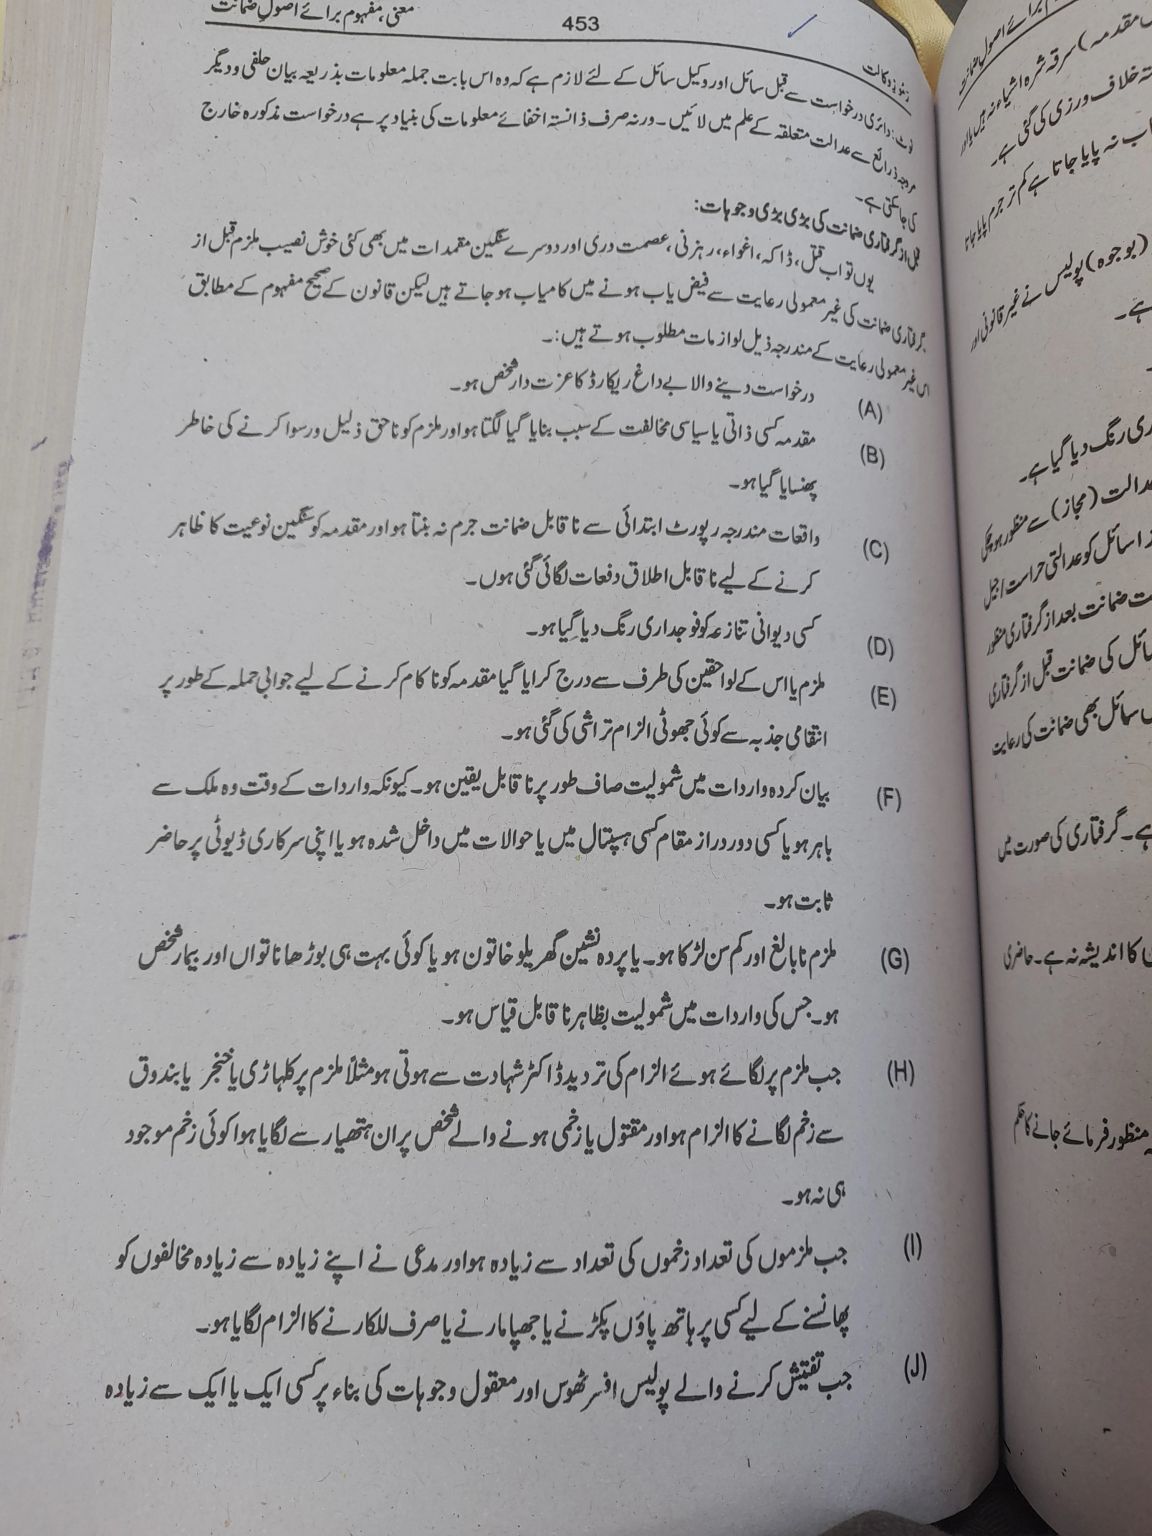 معنی، مفہوم برائے اصولِ ضمانت
453
رموزِ وکالت
نوٹ: دائری درخواست سے قبل سائل اور وکیل سائل کے لئے لازم ہے کہ وہ اس بابت جملہ معلومات بذریعہ بیان حلفی و دیگر
مروجہ ذرائع سے عدالت متعلقہ کے علم میں لائیں۔ ورنہ صرف دانستہ اخفائے معلومات کی بنیاد پر ہے درخواست مذکورہ خارج
کی جا سکتی ہے۔
قبل از گرفتاری ضمانت کی بڑی بڑی وجوہات:
یوں تو اب قتل، ڈاکہ، اغواء، رہزنی، عصمت دری اور دوسرے سنگین مقمدات میں بھی کئی خوش نصیب ملزم قبل از
گرفتاری ضمانت کی غیر معمولی رعایت سے فیض یاب ہونے میں کامیاب ہو جاتے ہیں لیکن قانون کے صحیح مفہوم کے مطابق
اس غیر معمولی رعایت کے مندرجہ ذیل لوازمات مطلوب ہوتے ہیں:۔
(A) درخواست دینے والا بے داغ ریکارڈ کا عزت دار شخص ہو۔
(B) مقدمہ کسی ذاتی یا سیاسی مخالفت کے سبب بنایا گیا لگتا ہو اور ملزم کو ناحق ذلیل و رسوا کرنے کی خاطر
پھنسایا گیا ہو۔
(C) واقعات مندرجہ رپورٹ ابتدائی سے نا قابل ضمانت جرم نہ بنتا ہو اور مقدمہ کو سنگین نوعیت کا ظاہر
کرنے کے لیے نا قابل اطلاق دفعات لگائی گئی ہوں۔
(D) کسی دیوانی تنازعہ کو فوجداری رنگ دیا گیا ہو۔
(E) ملزم یا اس کے لواحقین کی طرف سے درج کرایا گیا مقدمہ کو ناکام کرنے کے لیے جوابی حملہ کے طور پر
انتقامی جذبہ سے کوئی جھوٹی الزام تراشی کی گئی ہو۔
(F) بیان کردہ واردات میں شمولیت صاف طور پر نا قابل یقین ہو۔ کیونکہ واردات کے وقت وہ ملک سے
باہر ہو یا کسی دور دراز مقام کسی ہسپتال میں یا حوالات میں داخل شدہ ہو یا اپنی سرکاری ڈیوٹی پر حاضر
ثابت ہو۔
(G) ملزم نابالغ اور کم سن لڑکا ہو۔ یا پردہ نشین گھریلو خاتون ہو یا کوئی بہت ہی بوڑھا ناتواں اور بیمار شخص
ہو۔ جس کی واردات میں شمولیت بظاہر نا قابل قیاس ہو۔
(H) جب ملزم پر لگائے ہوئے الزام کی تردید ڈاکٹر شہادت سے ہوتی ہو مثلاً ملزم پر کلہاڑی یا خنجر یا بندوق
سے زخم لگانے کا الزام ہو اور مقتول یا زخمی ہونے والے شخص پر ان ہتھیار سے لگایا ہوا کوئی زخم موجود
ہی نہ ہو۔
(I) جب ملزموں کی تعداد زخموں کی تعداد سے زیادہ ہو اور مدعی نے اپنے زیادہ سے زیادہ مخالفوں کو
پھانسنے کے لیے کسی پر ہاتھ پاؤں پکڑنے یا جھپا مارنے یا صرف للکارنے کا الزام لگایا ہو۔
(J) جب تفتیش کرنے والے پولیس افسر ٹھوس اور معقول وجوہات کی بناء پر کسی ایک یا ایک سے زیادہ
مقدمہ) سرقہ شدہ اشیاء نہ ہیں یا اور
خلاف ورزی کی گئی ہے۔
نہ پایا جاتا ہے کم تر جرم پایا جاتا
(بوجوہ) پولیس نے غیر قانونی اور
ہے۔
رنگ دیا گیا ہے۔
عدالت (مجاز) سے منظور ہو چکی
سائل کو عدالتی حراست / جیل
ضمانت بعد از گرفتاری منظور
سائل کی ضمانت قبل از گرفتاری
سائل بھی ضمانت کی رعایت
ہے۔ گرفتاری کی صورت میں
کا اندیشہ نہ ہے۔ حاضری
منظور فرمائے جانے کا حکم